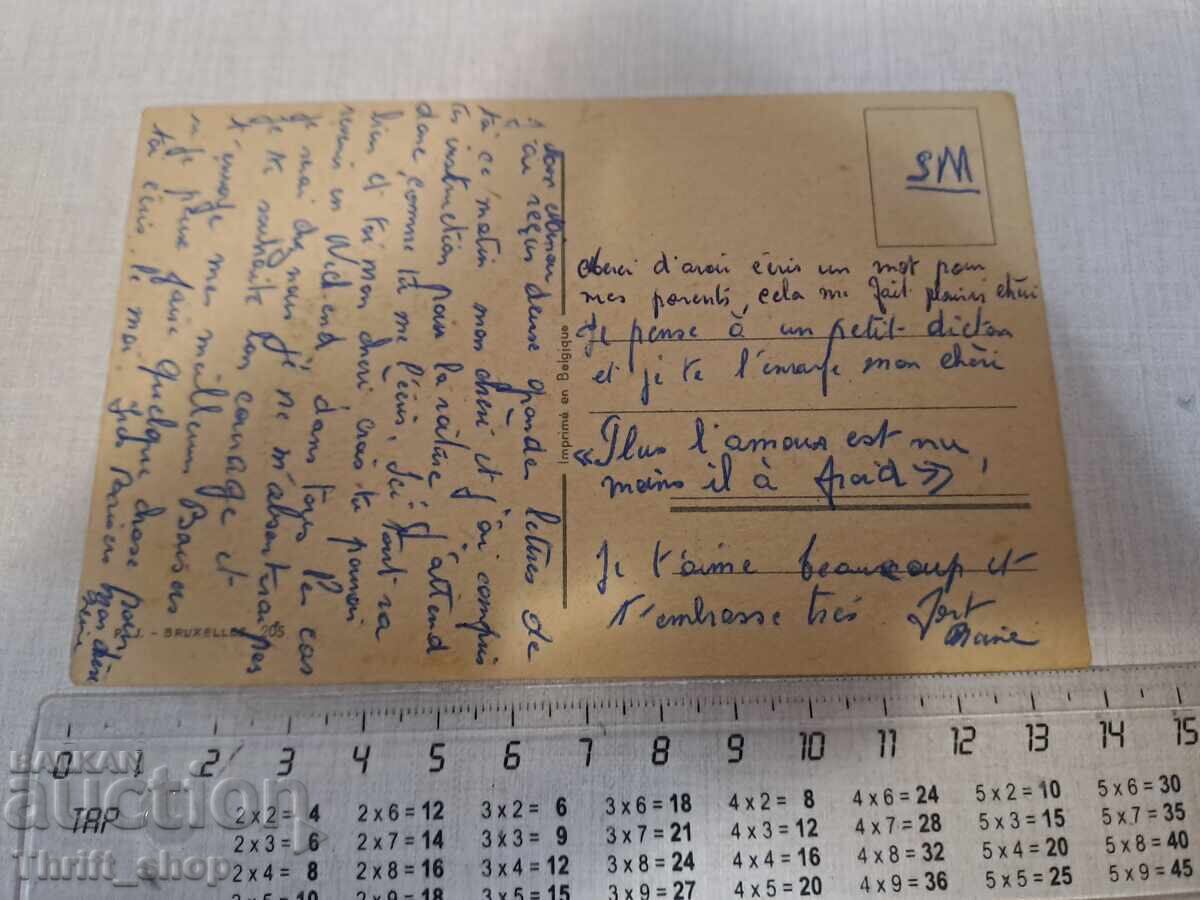 Mon Minou
J'ai reçus deux grande lettres de
toi ce matin mon chéri et j'ai compris
tes instruction pour la
donc comme tu me l'écris. Ici tout va
bien et toi mon chéri crois-tu pouvoir
revenir un Wickend dans
je
je te souhaite bon courage et
t'envoye mes meilleurs Baisers
si je peux faire quelque chose pour
toi écris le moi.
J. - BRUXELLES 205
Imprimé en Belgique
SM
Merci d'avoir écris un mot pour
mes parents, cela me fait plaisir chéri
Je pense à un petit dicton
et je te l'envoye mon chéri
« Plus l'amour est nu
moins il à froid » !
Je t'aime beaucoup et
t'embrasse très fort
0 1 2 3 4 5 6 7 8 9 10 11 12 13 14 15
BALKAN
auction
Thrift_shop
TAP
2 x 2 = 4 2 x 6 = 12 3 x 2 = 6 3 x 6 = 18 4 x 2 = 8 4 x 6 = 24 5 x 2 = 10 5 x 6 = 30
2 x 3 = 6 2 x 7 = 14 3 x 3 = 9 3 x 7 = 21 4 x 3 = 12 4 x 7 = 28 5 x 3 = 15 5 x 7 = 35
2 x 4 = 8 2 x 8 = 16 3 x 4 = 12 3 x 8 = 24 4 x 4 = 16 4 x 8 = 32 5 x 4 = 20 5 x 8 = 40
2 x 5 = 10 2 x 9 = 18 3 x 5 = 15 3 x 9 = 27 4 x 5 = 20 4 x 9 = 36 5 x 5 = 25 5 x 9 = 45